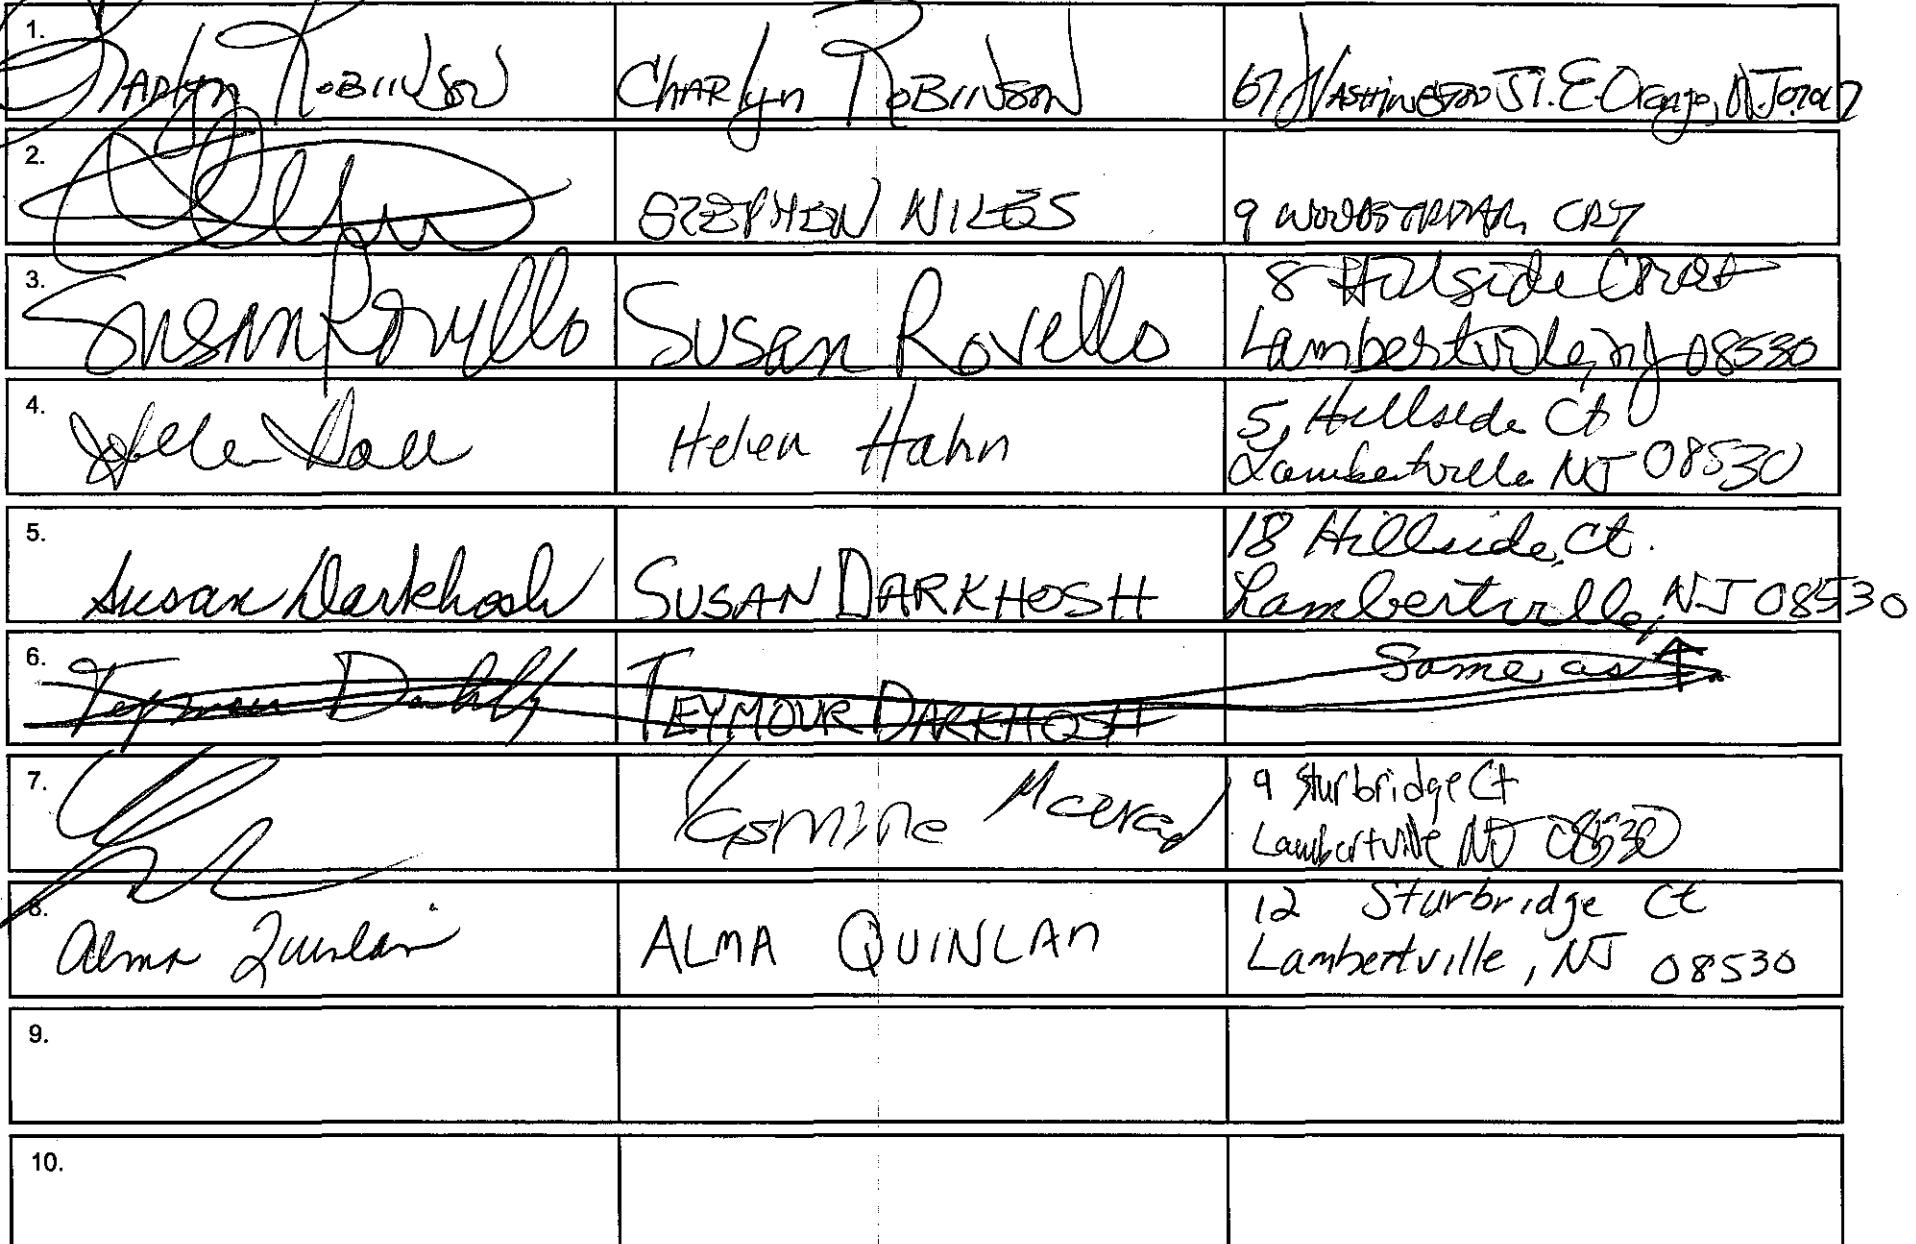 1. Charlyn Robinson Charlyn Robinson 67 Washington St. E. Orange, NJ 07017
2. STEPHEN NILES 9 CRT
3. Susan Rovello Susan Rovello 8 Hillside Court
Lambertville, NJ 08530
4. Helen Hahn Helen Hahn 5 Hillside Ct
Lambertville NJ 08530
5. Susan Darkhosh SUSAN DARKHOSH 18 Hillside Ct.
Lambertville, NJ 08530
6. TEYMOUR DARKHOSH Same as ↑
7. Yasmine 9 Sturbridge Ct
Lambertville NJ 08530
8. Alma Quinlan ALMA QUINLAN 12 Sturbridge Ct
Lambertville, NJ 08530
9.
10.